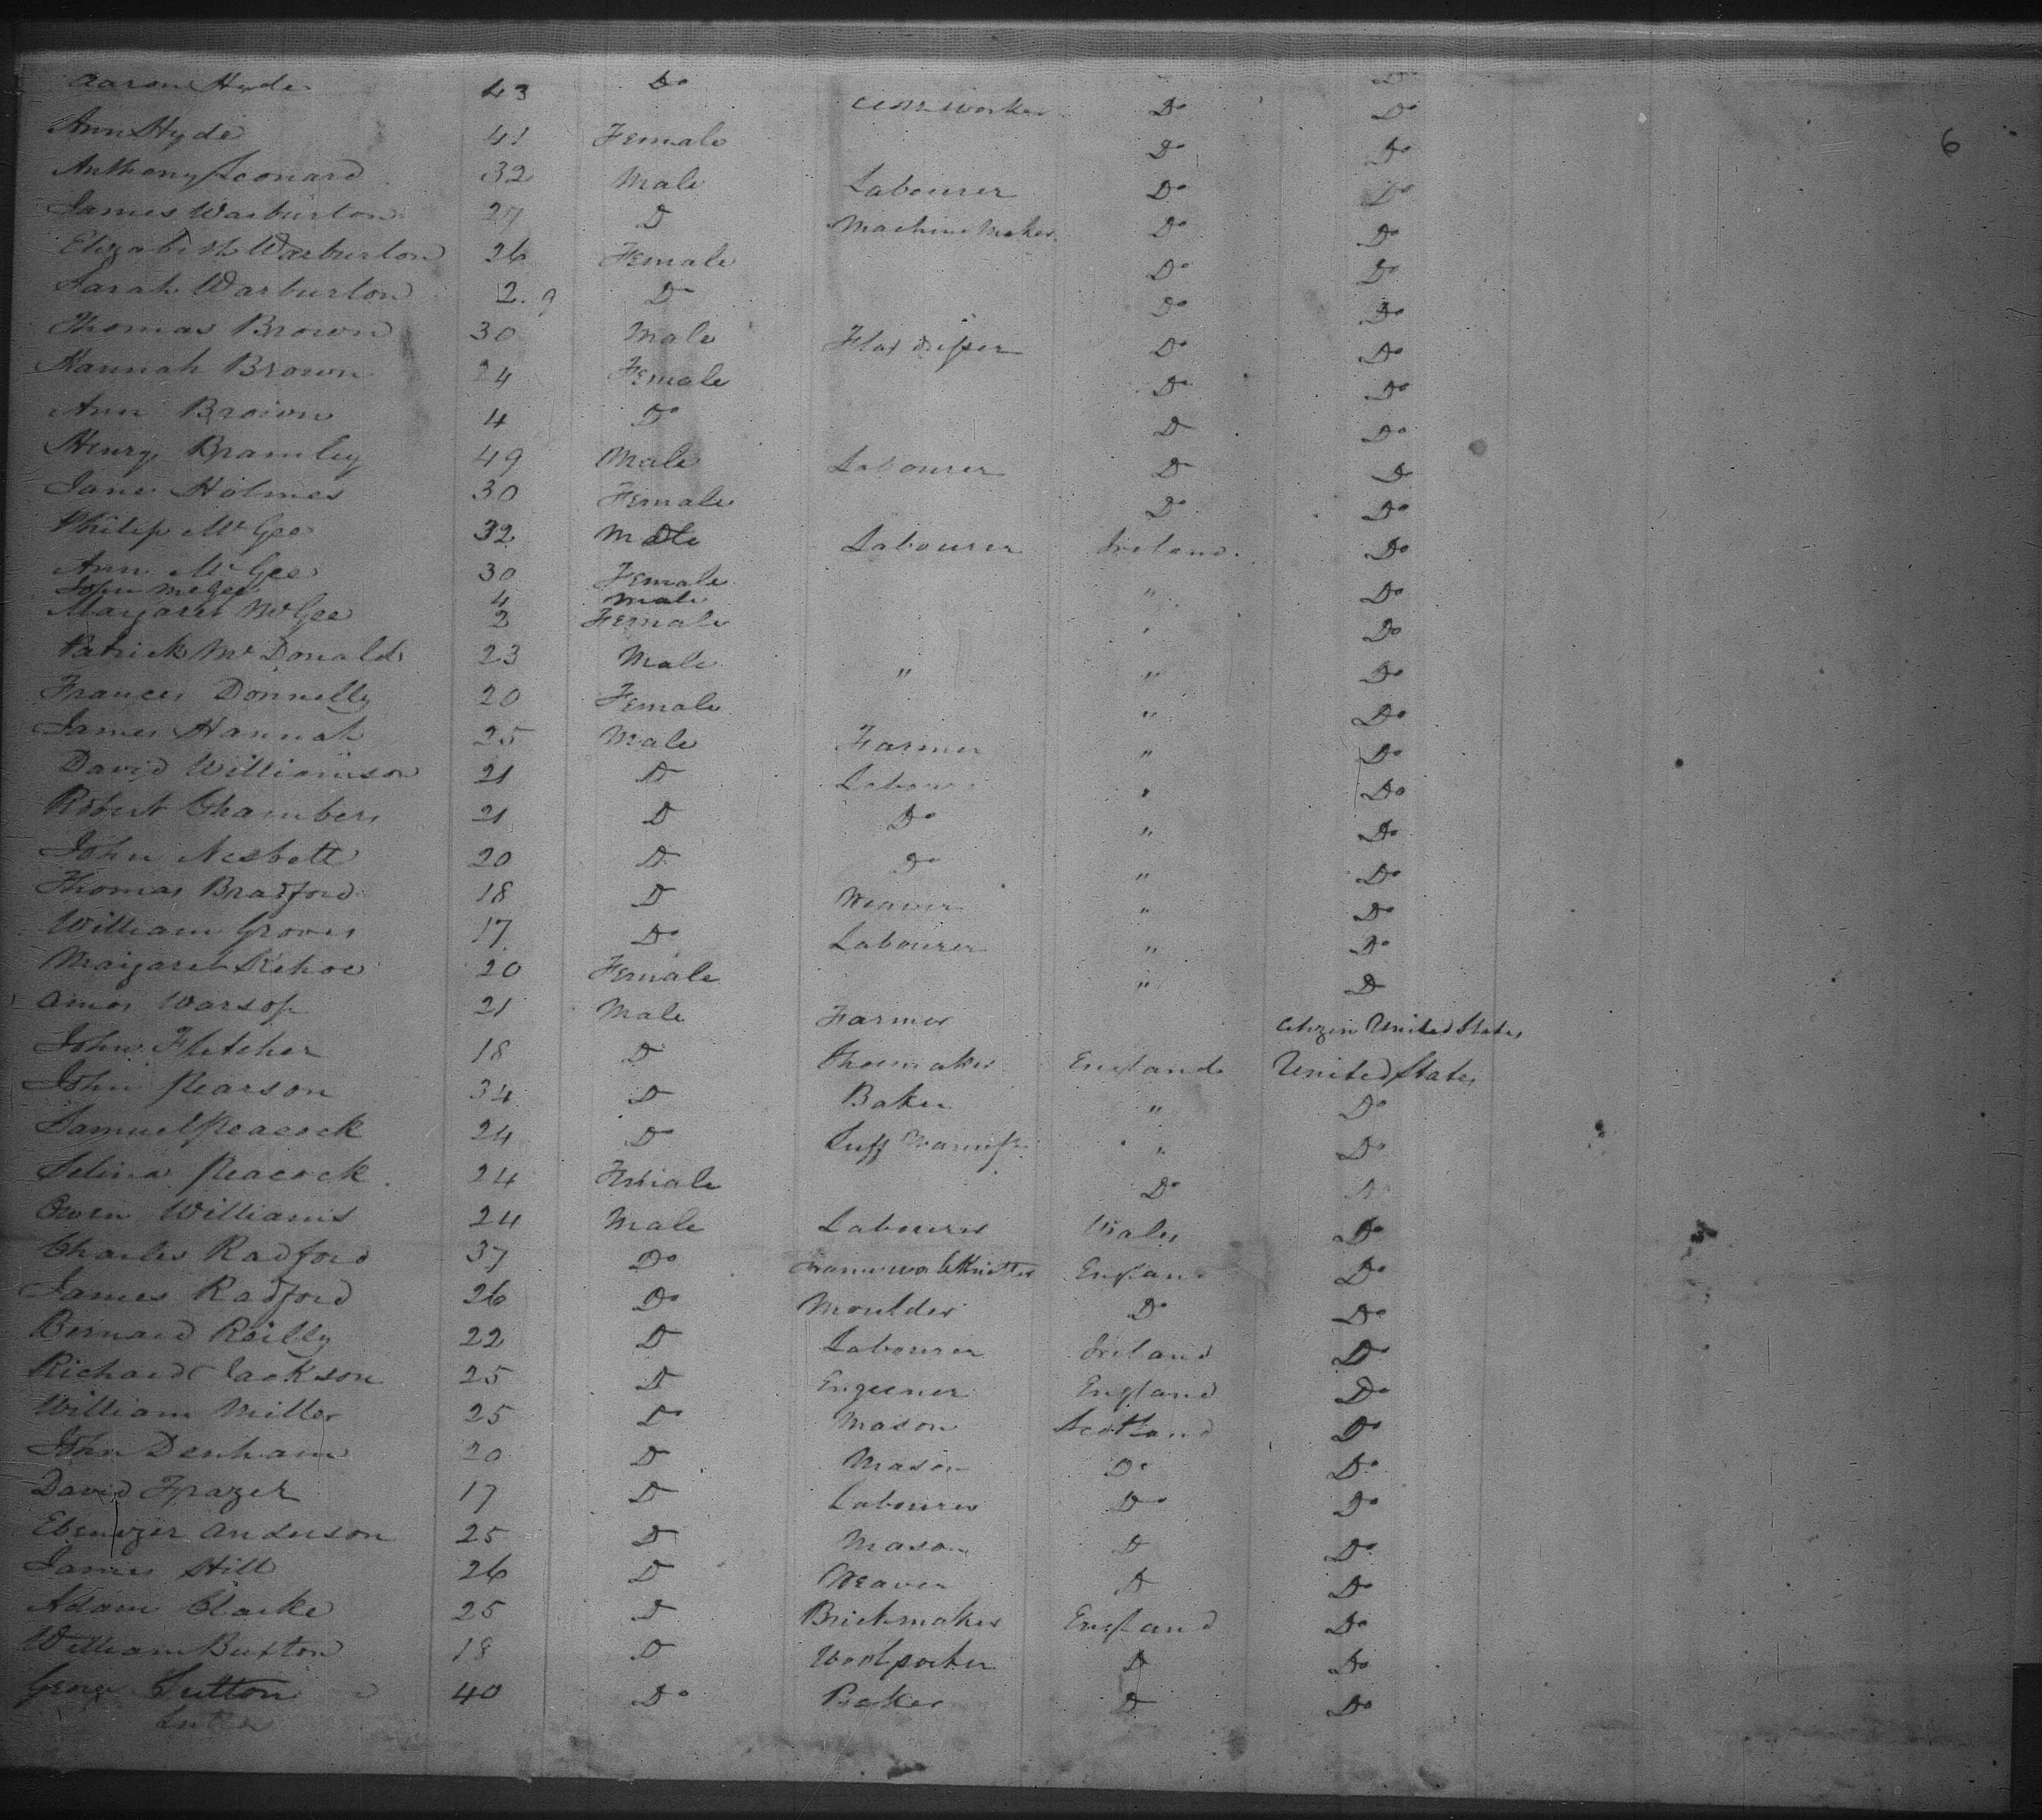 Aaron Hyde 43 Do worker Do Do
Ann Hyde 41 Female Do Do
6
Anthony Leonard 32 Male Labourer Do Do
James Warburton 27 D Machine Maker Do Do
Elizabeth Warburton 26 Female Do Do
Sarah Warburton 2. 9 Do Do Do
Thomas Brown 30 Male Flax Do Do
Hannah Brown 24 Female Do Do
Ann Brown 4 Do D Do
Henry Bramley 49 Male Labourer D D
Jane Holmes 30 Female Do Do
Philip McGee 32 Male Labourer Ireland Do
Ann McGee 30 Female " Do
John McGee 4 Male
Margaret McGee 2 Female " Do
Patrick McDonald 23 Male " " Do
Frances Donnelly 20 Female " Do
James Hannah 25 Male Farmer " Do
David Williamson 21 D Labourer " Do
Robert Chambers 21 D Do " Do
John Nesbett 20 D Do " Do
Thomas Bradford 18 D Weaver " Do
William Groves 17 Do Labourer " Do
Margaret Kehoe 20 Female " D
Amos Warsop 21 Male Farmer Citizen United States
John Fletcher 18 D Shoemaker England United States
John Pearson 34 D Baker " Do
Samuel Peacock 24 Do " Do
Selina Peacock 24 Female Do D
Owen Williams 24 Male Labourer Wales Do
Charles Radford 37 Do Framework Knitter England Do
James Radford 26 Do Moulder Do Do
Bernard Reilly 22 D Labourer Ireland D
Richard Jackson 25 D Engeener England Do
William Miller 25 Do Mason Scotland Do
John Denham 20 D Mason Do Do
David Frazer 17 D Labourer Do Do
Ebenezer Anderson 25 D Mason D Do
James Hill 26 D Weaver D Do
Adam Clarke 25 D Brickmaker England Do
William Buxton 18 D D Do
George Sutton 40 Do Baker D Do